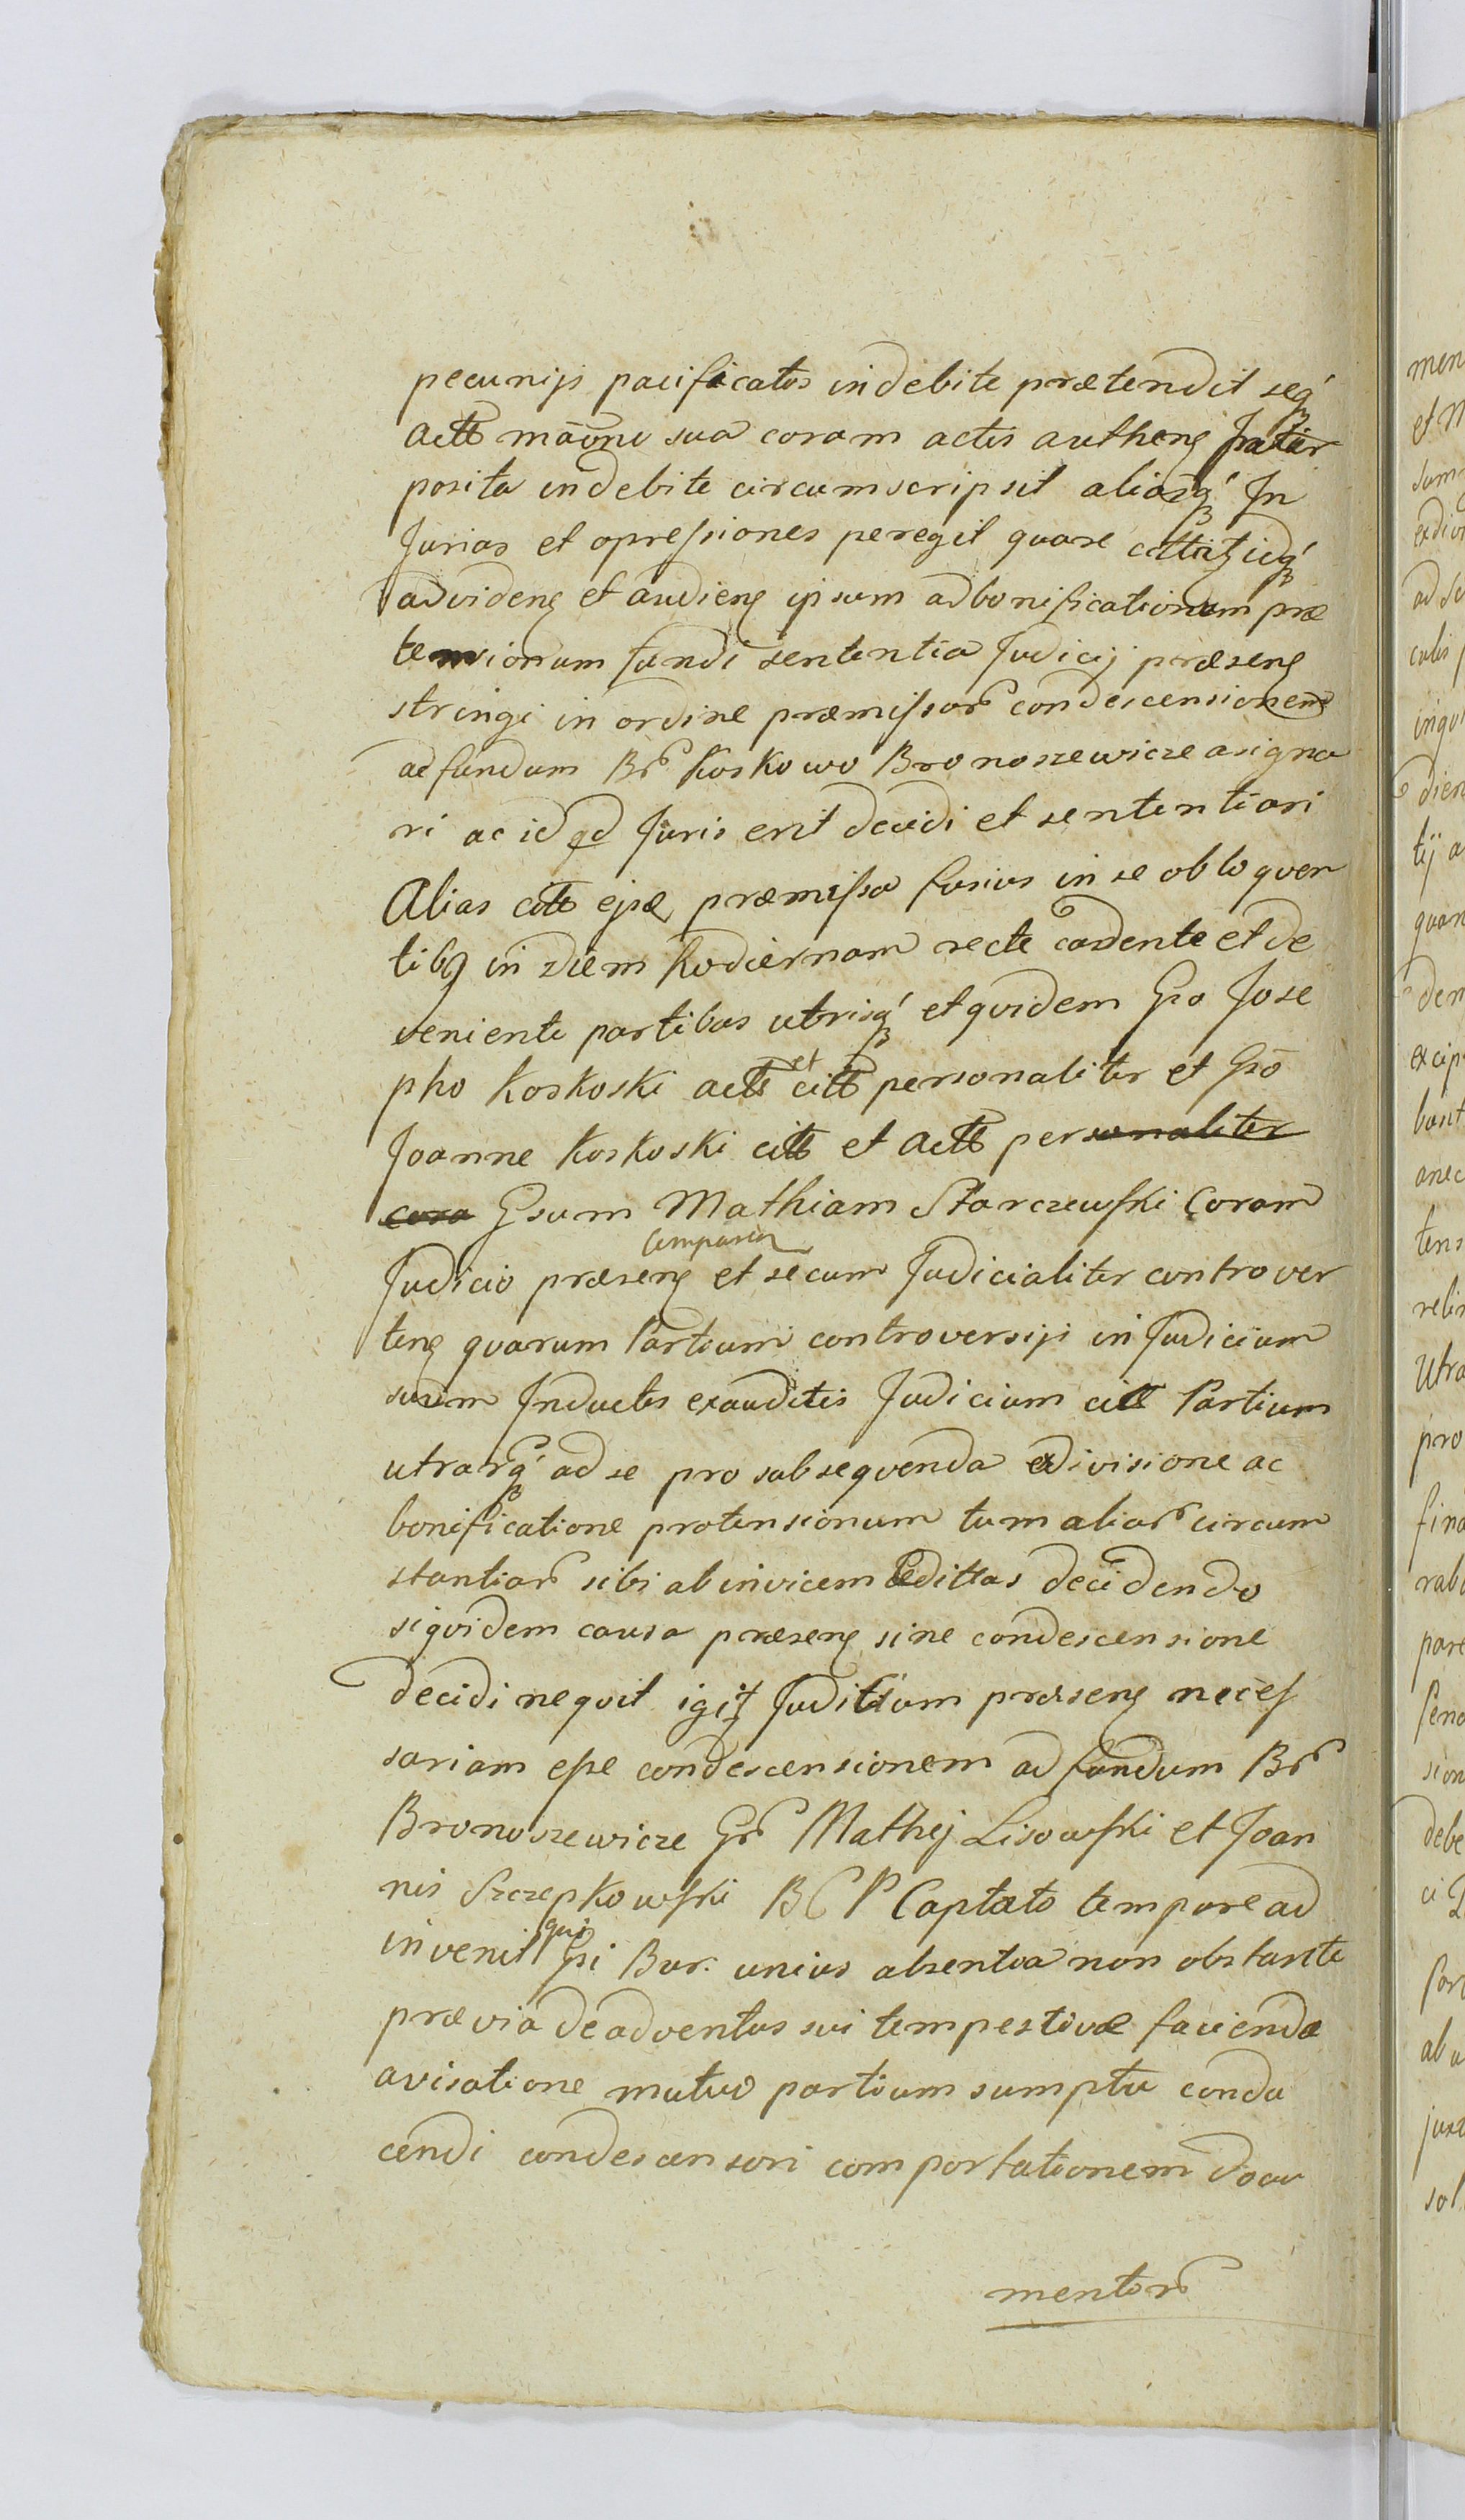 pecunijs pacificatos indebite prætendit seq́
actt mãonu sua coram actis authenꝫ frater
posita indebite circumscripsit aliasq́ Jn
Jurias et opressiones peregit quare cittat idq́
ad videnꝫ et audienꝫ ipsum ad bonificationem præ
tensionum fundi sententia Judicij præsenꝫ
stringi in ordine præmissor condescensionem
ad fundum Br Koskowo Bronoszewicze asigna
ri ac id qd Juris erit decidi et sententiari
Alias citt ejsꝫ præmissa fusius in se obloquen
tibꝫ in diem hodiernam recte cadente et de
veniente partibus utrisq́ et quidem Gso Jose
pho Koskoski actt et citt personaliter et Gso
Joanne Koskoski citt et actt personaliter
cora Gsum Mathiam Starczewski Coram
Judicio præsenꝫ comparen et secum Judicialiter controver
tenꝫ quarum Partium controversijs in Judicium
suum Inductis exauditis Judicium citt Partium
utrarq́ ad se pro subsequenda edivisione ac
bonificatione prætensionum tum aliar circum
stantiar sibi ab invicem edittas decidendo
siquidem causa præsenꝫ sine condescensione
decidi nequit igit Juditium præsenꝫ neces
sariam esse condescensionem ad fundum Br
Bronoszewicze Gr Mathej Lisowski et Joan
nis Szczepkowski B C P Captato tempore ad
invenit qui Gsi Bur. unius absentia non obstante
prævia de adventus sui tempestivæ facienda
avisatione mutuo partium sumptu condu
cendi condescensori comportationem docu
mentor
men
et M
sum
ad su
culis
inqui
dien
tij a
quan
den
excip
bunt
anec
tens
relin
Utra
pro
fina
rabi
pare
sion
debe
Par
ab u
juxt
sol